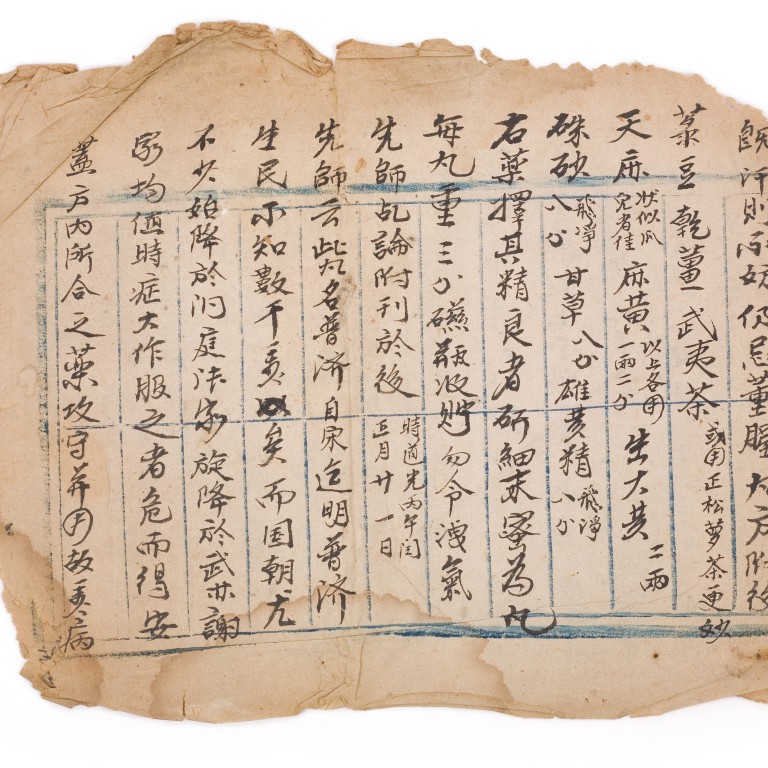 既汗則不妨仍忌葷腥大方附後
菉豆 乾薑 武夷茶 或用正松蘿茶更妙
天麻 状似瓜兒者佳 麻黃 以上各用一兩二分 生大黃 二兩
硃砂 飛淨八分 甘草 八分 雄黃精 飛淨八分
右藥擇其精良者研細末蜜為丸
每丸重三分礠瓶收貯勿令洩氣
先師乩論附刊於後 時道光丙午閏五月廿一日
先師云此丸名普濟自宋迄明普濟
生民不知數千矣而国朝尤
不少始降於洞庭法家旋降於武林謝
家均值時症大作服之者危而得安
蓋方內所合之藥攻守并用故受病